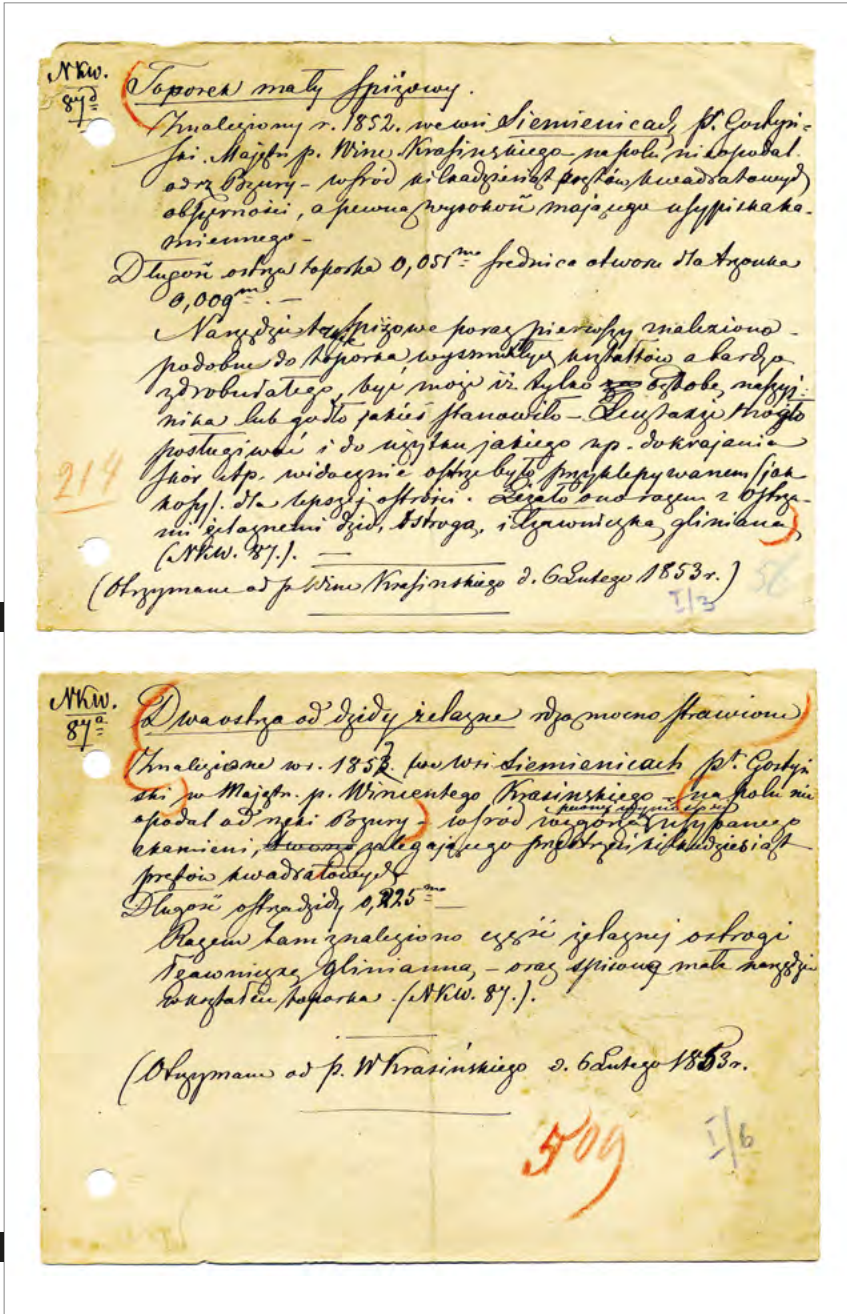 NKW.
87d
Toporek mały spiżowy.
Znaleziony r. 1852. we wsi Siemienicach, pt. Gostyń-
ski. Majętn. p. Winc. Krasińskiego – na polu nieopodal
od rz Bzury – wśród kilkadziesiąt prętów kwadratowych
obszerności, a pewną wysokość mającego usypiska ka-
miennego –
Długość ostrza toporka 0,051m średnica otworu dla trzonka
0,009m. –
Narzędzie to spiżowe poraz pierwszy znalezione –
podobne do toporka wysmukłych kształtów a bardzo
zdrobniałego, być może iż tylko ozdobę, naszyj-
nika lub godło jakieś stanowiło – mogło
posługiwać i do użytku jakiego np. do krajania
skór itp. widocznie ostrze było przyklepywanem /jak
kosy/. dla lepszej ostrości. Leżało ono razem z ostrza-
mi żelaznemi dzid, ostrogą, i łzawniczką glinianą,
(NKW. 87.). –
214
(Otrzymane od p. Winc Krasińskiego d. 6 Lutego 1853 r.)
56
I/3
NKW.
87a
Dwa ostrza od dzidy żelazne rdzą mocno strawione
Znalezione w r. 1852. we wsi Siemienicach pt. Gostyń
ski w Majętn. p. Wincentego Krasińskiego – na polu nie
opodal od rzeki Bzury – wśród usypanego
z kamieni, zalegającego przestrzeń kilkadziesiąt
prętów kwadratowych
Długość ostrza dzidy 0,225m –
Razem tam znaleziono część żelaznej ostrogi
łzawniczkę glinianną, – oraz spiżowe małe narzędzie
w kształcie toporka. (NKW. 87.).
(Otrzymane od p. W Krasińskiego d. 6 Lutego 1853 r.
509
I/6